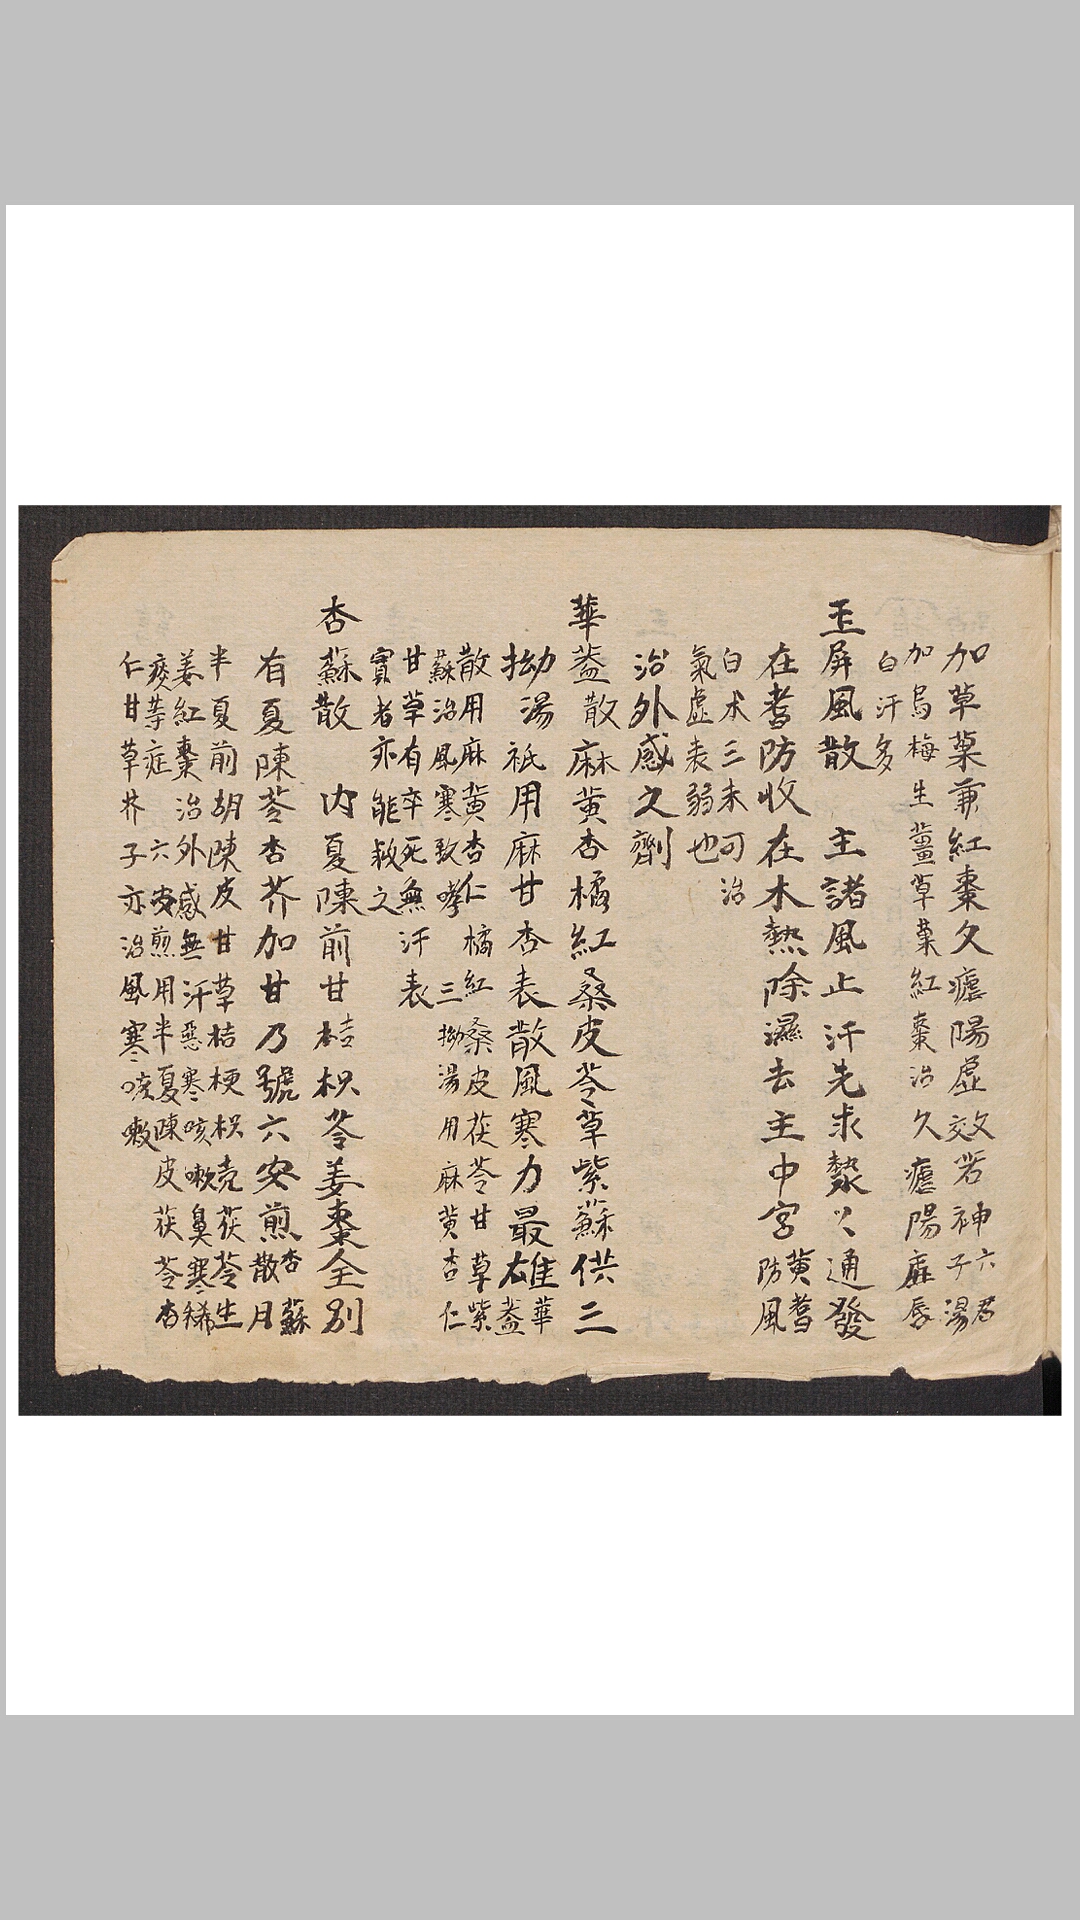 加草菓兼紅棗久瘧陽虛效若神六君子湯
加烏梅生薑草菓紅棗治久瘧陽虛唇
白汗多
玉屏風散 主諸風止汗先求熱〻通發
在耆防收在木熱除濕去主中宮黃耆防風
白术三未可治
氣虛表弱也
治外感之劑
華蓋散麻黃杏橘紅桑皮苓草紫蘇供三
拗湯祇用麻甘杏表散風寒力最雄華蓋
散用麻黃杏仁橘紅桑皮茯苓甘草紫
蘇治風寒致哮三拗湯用麻黃杏仁
甘草有卒死無汗表
實者亦能救之
杏蘇散 內夏陳前甘桔枳苓姜棗全別
有夏陳苓杏芥加甘乃號六安煎杏蘇散月
半夏前胡陳皮甘草桔梗枳壳茯苓生
姜紅棗治外感無汗惡寒咳嗽鼻寒稀
痰等症六安煎用半夏陳皮茯苓杏
仁甘草芥子亦治風寒咳嗽